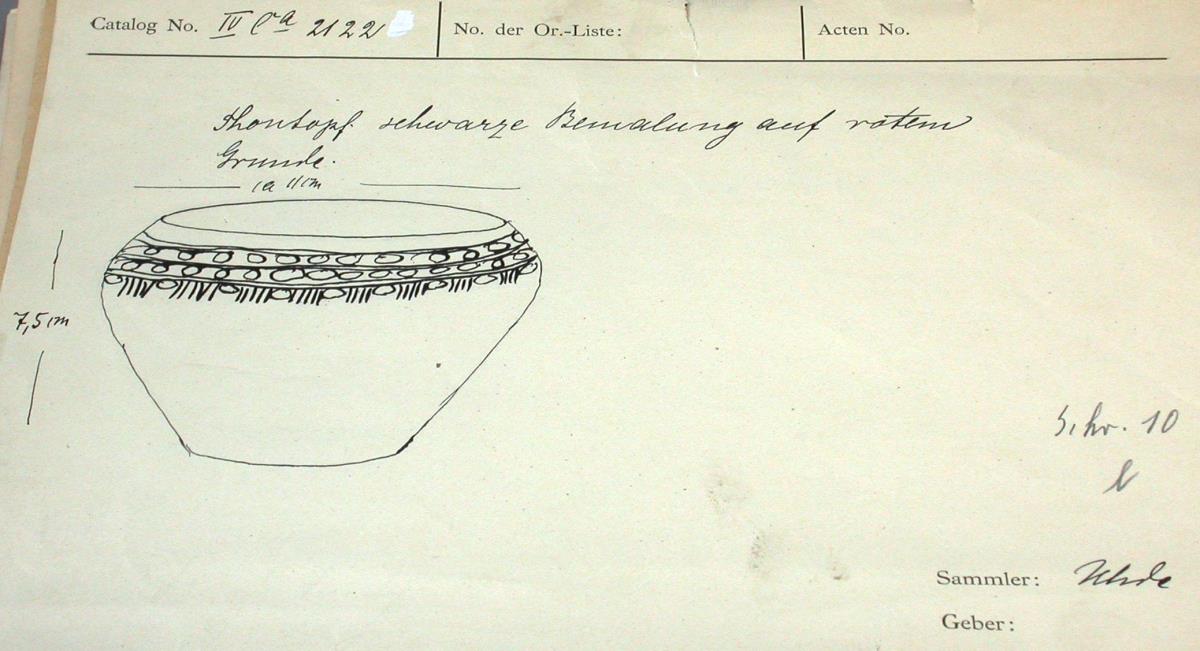 Catalog No. IV Ca 2122 No. der Or.-Liste: Acten No.
Thontopf. schwarze Bemalung auf rotem
Grunde.
ca 11 cm
7,5 cm
Schr. 10
l
Sammler: Uhde
Geber: